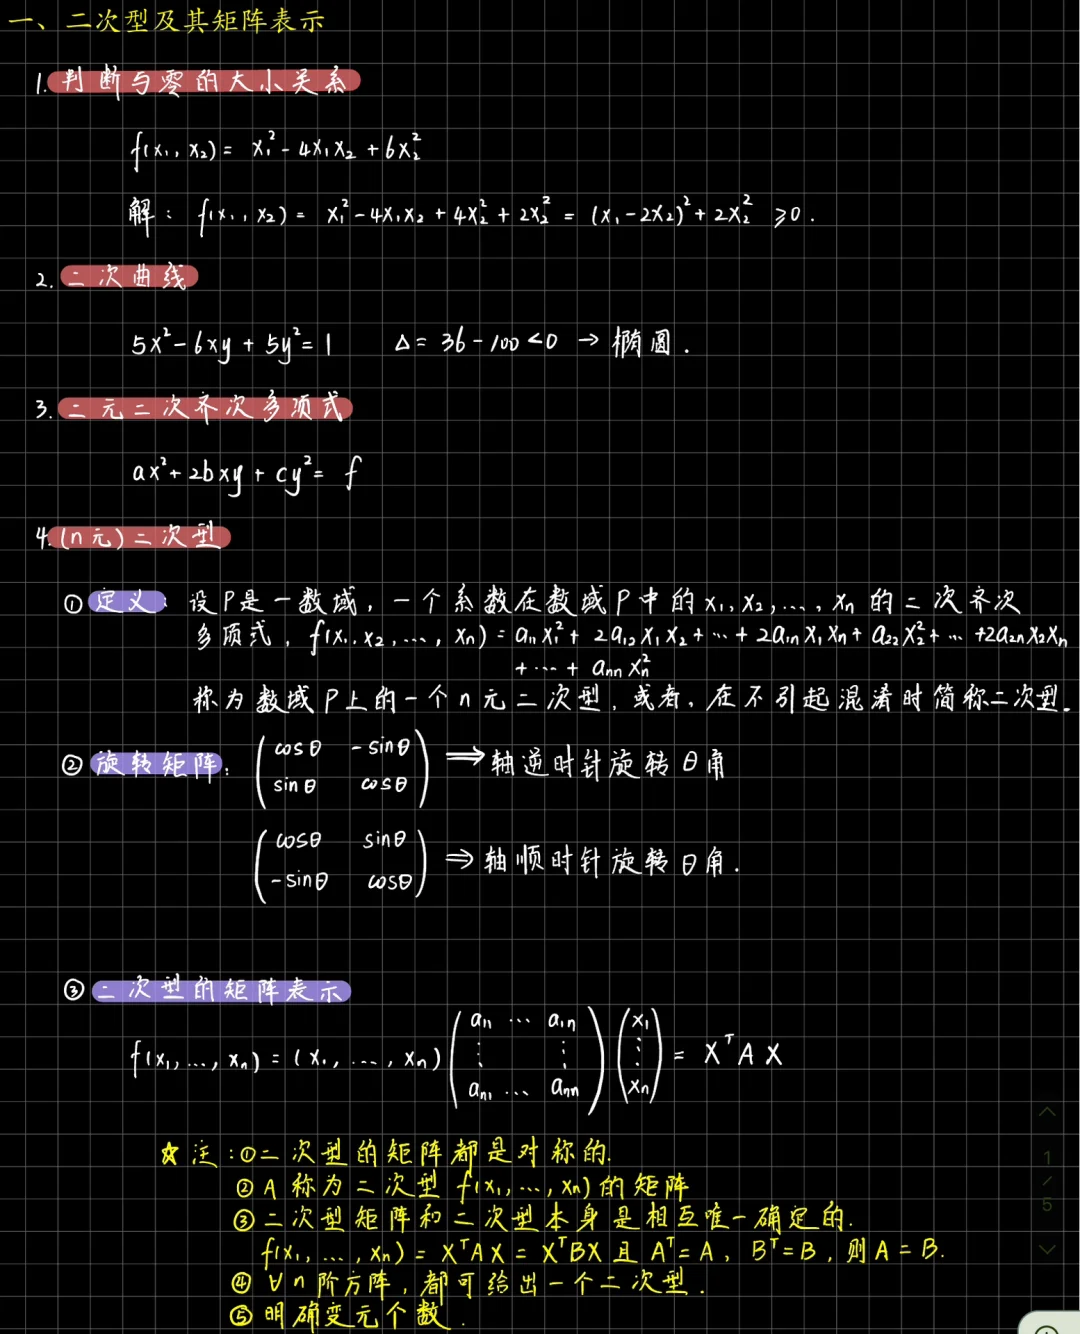 一、二次型及其矩阵表示
1. 判断与零的大小关系
f(x₁, x₂) = x₁² - 4x₁x₂ + 6x₂²
解: f(x₁, x₂) = x₁² - 4x₁x₂ + 4x₂² + 2x₂² = (x₁ - 2x₂)² + 2x₂² ≥ 0.
2. 二次曲线
5x² - 6xy + 5y² = 1 Δ = 36 - 100 < 0 → 椭圆.
3. 二元二次齐次多项式
ax² + 2bxy + cy² = f
4. (n元) 二次型
① 定义: 设P是一数域, 一个系数在数域P中的 x₁, x₂, …, xₙ 的二次齐次
多项式, f(x₁, x₂, …, xₙ) = a₁₁x₁² + 2a₁₂x₁x₂ + … + 2a₁ₙx₁xₙ + a₂₂x₂² + … + 2a₂ₙx₂xₙ
+ … + aₙₙxₙ²
称为数域P上的一个n元二次型, 或者, 在不引起混淆时简称二次型.
② 旋转矩阵:
( cosθ -sinθ
sinθ cosθ ) ⟹ 轴逆时针旋转θ角
( cosθ sinθ
-sinθ cosθ ) ⟹ 轴顺时针旋转θ角.
③ 二次型的矩阵表示
f(x₁, …, xₙ) = (x₁, …, xₙ) ( a₁₁ … a₁ₙ
⋮ ⋮
aₙ₁ … aₙₙ ) ( x₁
⋮
xₙ ) = XᵀAX
☆ 注: ①二次型的矩阵都是对称的.
② A 称为二次型 f(x₁, …, xₙ) 的矩阵
③ 二次型矩阵和二次型本身是相互唯一确定的.
f(x₁, …, xₙ) = XᵀAX = XᵀBX 且 Aᵀ = A, Bᵀ = B, 则 A = B.
④ ∀n阶方阵, 都可给出一个二次型.
⑤ 明确变元个数.
1
/
5